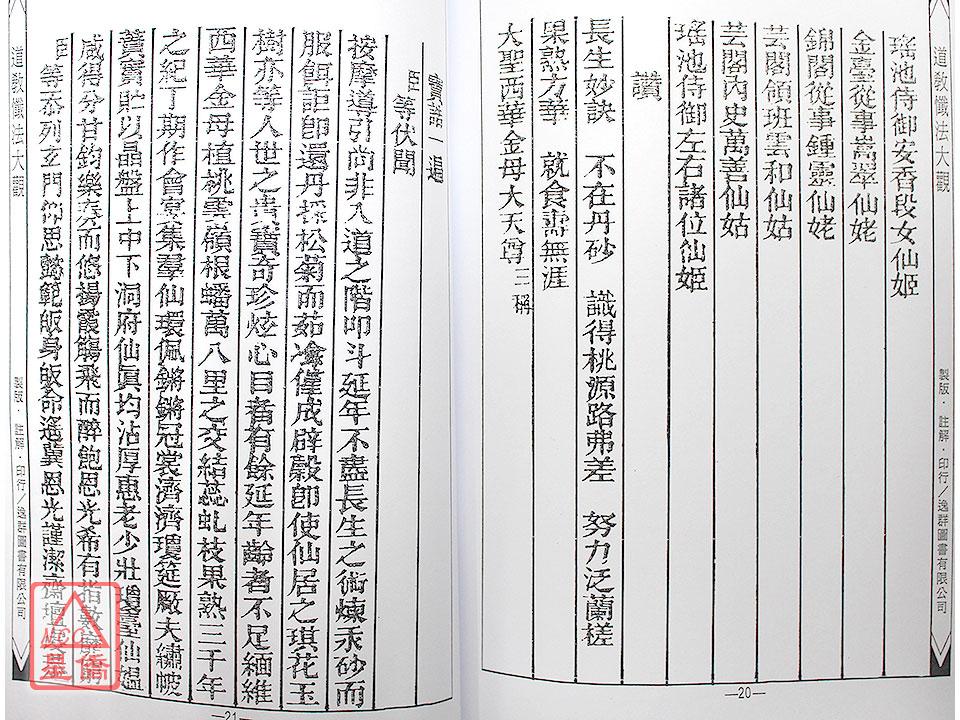 道教懺法大觀
製版．註解．印行／逸群圖書有限公司
瑤池侍御安香段女仙姬
金臺從事嵩翠仙姥
錦閣從事鍾靈仙姥
芸閣領班雲和仙姑
芸閣內史萬善仙姑
瑤池侍御左右諸位仙姬
讚
長生妙訣 不在丹砂 識得桃源路弗差 努力泛蘭槎
果熟方華 就食壽無涯
大聖西華金母大天尊 三稱
—20—
寶誥一遍
臣等伏聞
按摩導引尚非入道之階叩斗延年不盡長生之術煉汞砂而
服餌詎即還丹採松菊而茹飡僅成辟穀即使仙居之琪花玉
樹亦等人世之貴寶奇珍炫心目者有餘延年齡者不足緬維
西華金母植桃雲嶺根蟠萬八里之交結蕊虬枝果熟三千年
之紀丁期作會宴集羣仙環佩鏘鏘冠裳濟濟瓊筵敞夫繡帔
蕢實貯以晶盤上中下洞府仙眞均沾厚惠老少壯瓊臺仙媼
咸得分甘鈞樂奏而悠揚霞觴飛而醉飽恩光希有指數
臣等忝列玄門仰思懿範皈身皈命遙冀恩光謹潔齋壇
—21—
道教懺法大觀
製版．註解．印行／逸群圖書有限公司
NCC
星僑